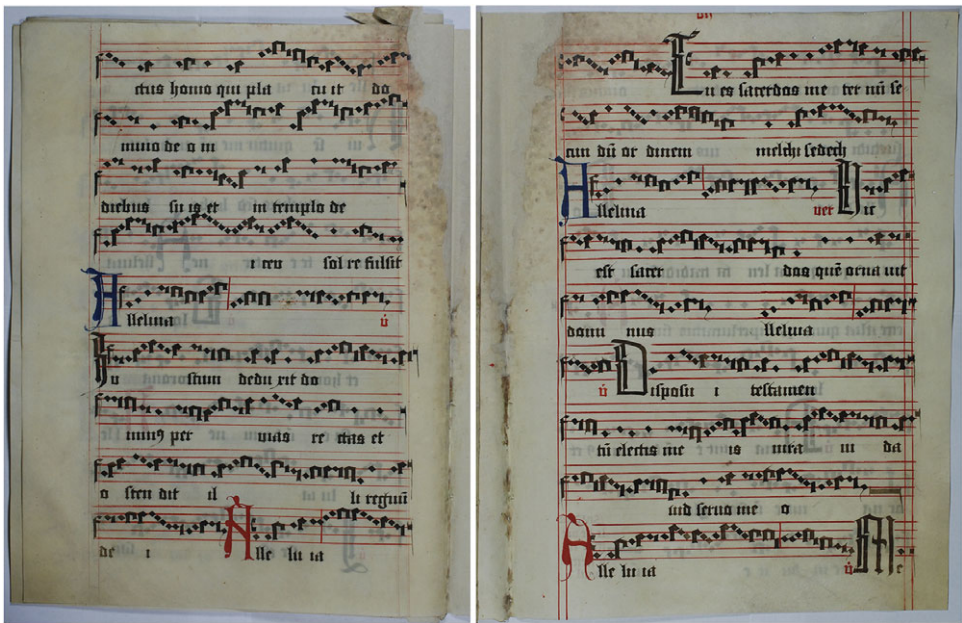 ctus homo qui pla cu it do
mino de o in
diebus su is et in templo de
i ceu sol re fulsit
Alleluia v̇
Iu stum dedu xit do
min9 per uias re ctas et
o sten dit il li regnū
de i Alle lu ia
Tu es sacerdos me ter nū se
cun dū or dinem melchi sedech
Alleluia uer Hic
est sacer dos quē orna uit
domi nus Alleluia
v̇ Disposui i testamen
tū electis me is iura ui da
uid seruo me o
Alle lu ia v̇ Me